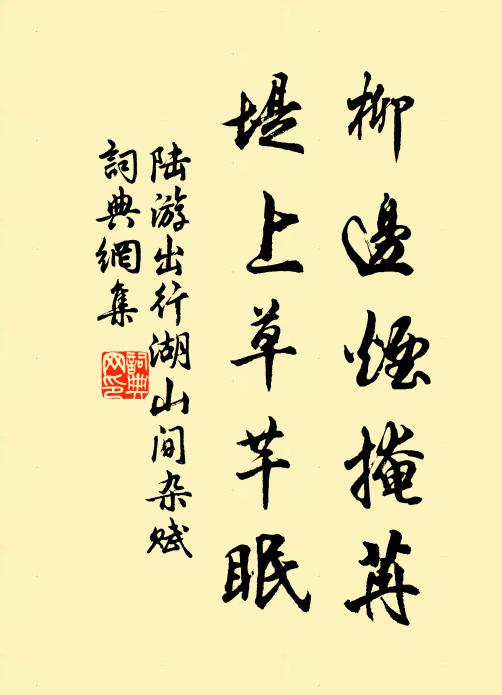 柳邊煙掩苒
堤上草芊眠
陆游出行湖山间杂赋
詞典網集
詞典网印